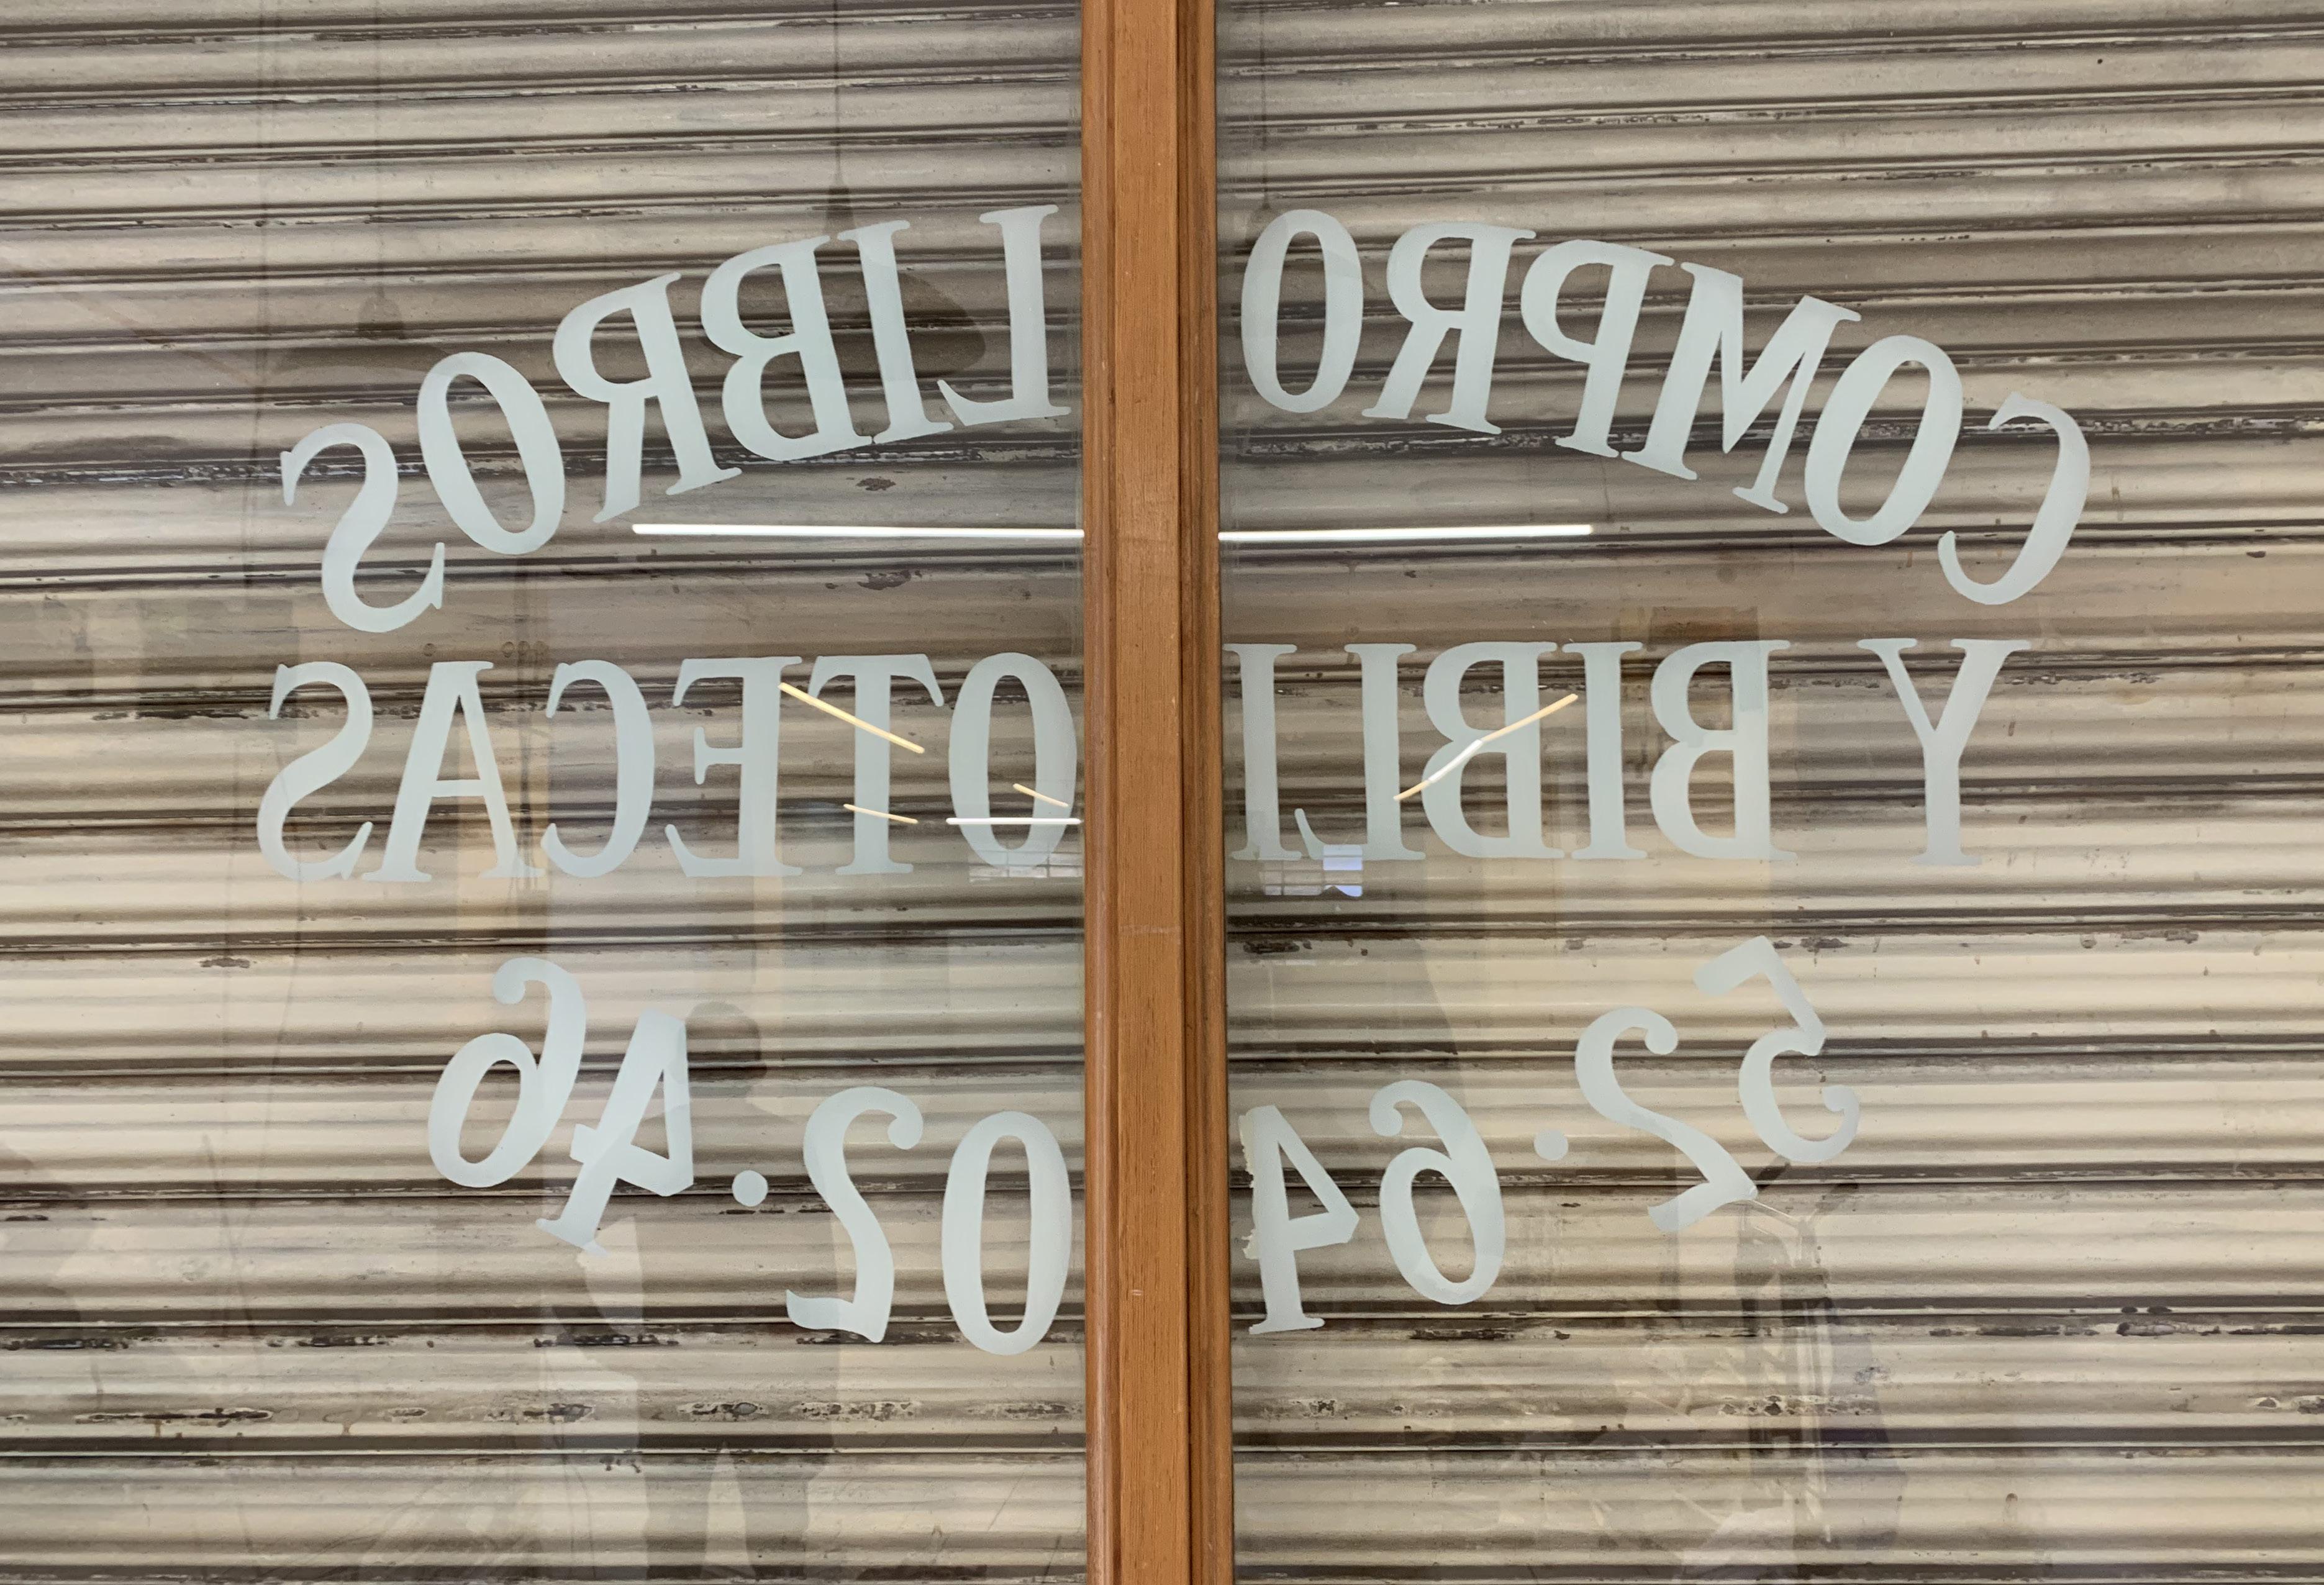 COMPRO LIBROS
Y BIBLIOTECAS
52.6402.46